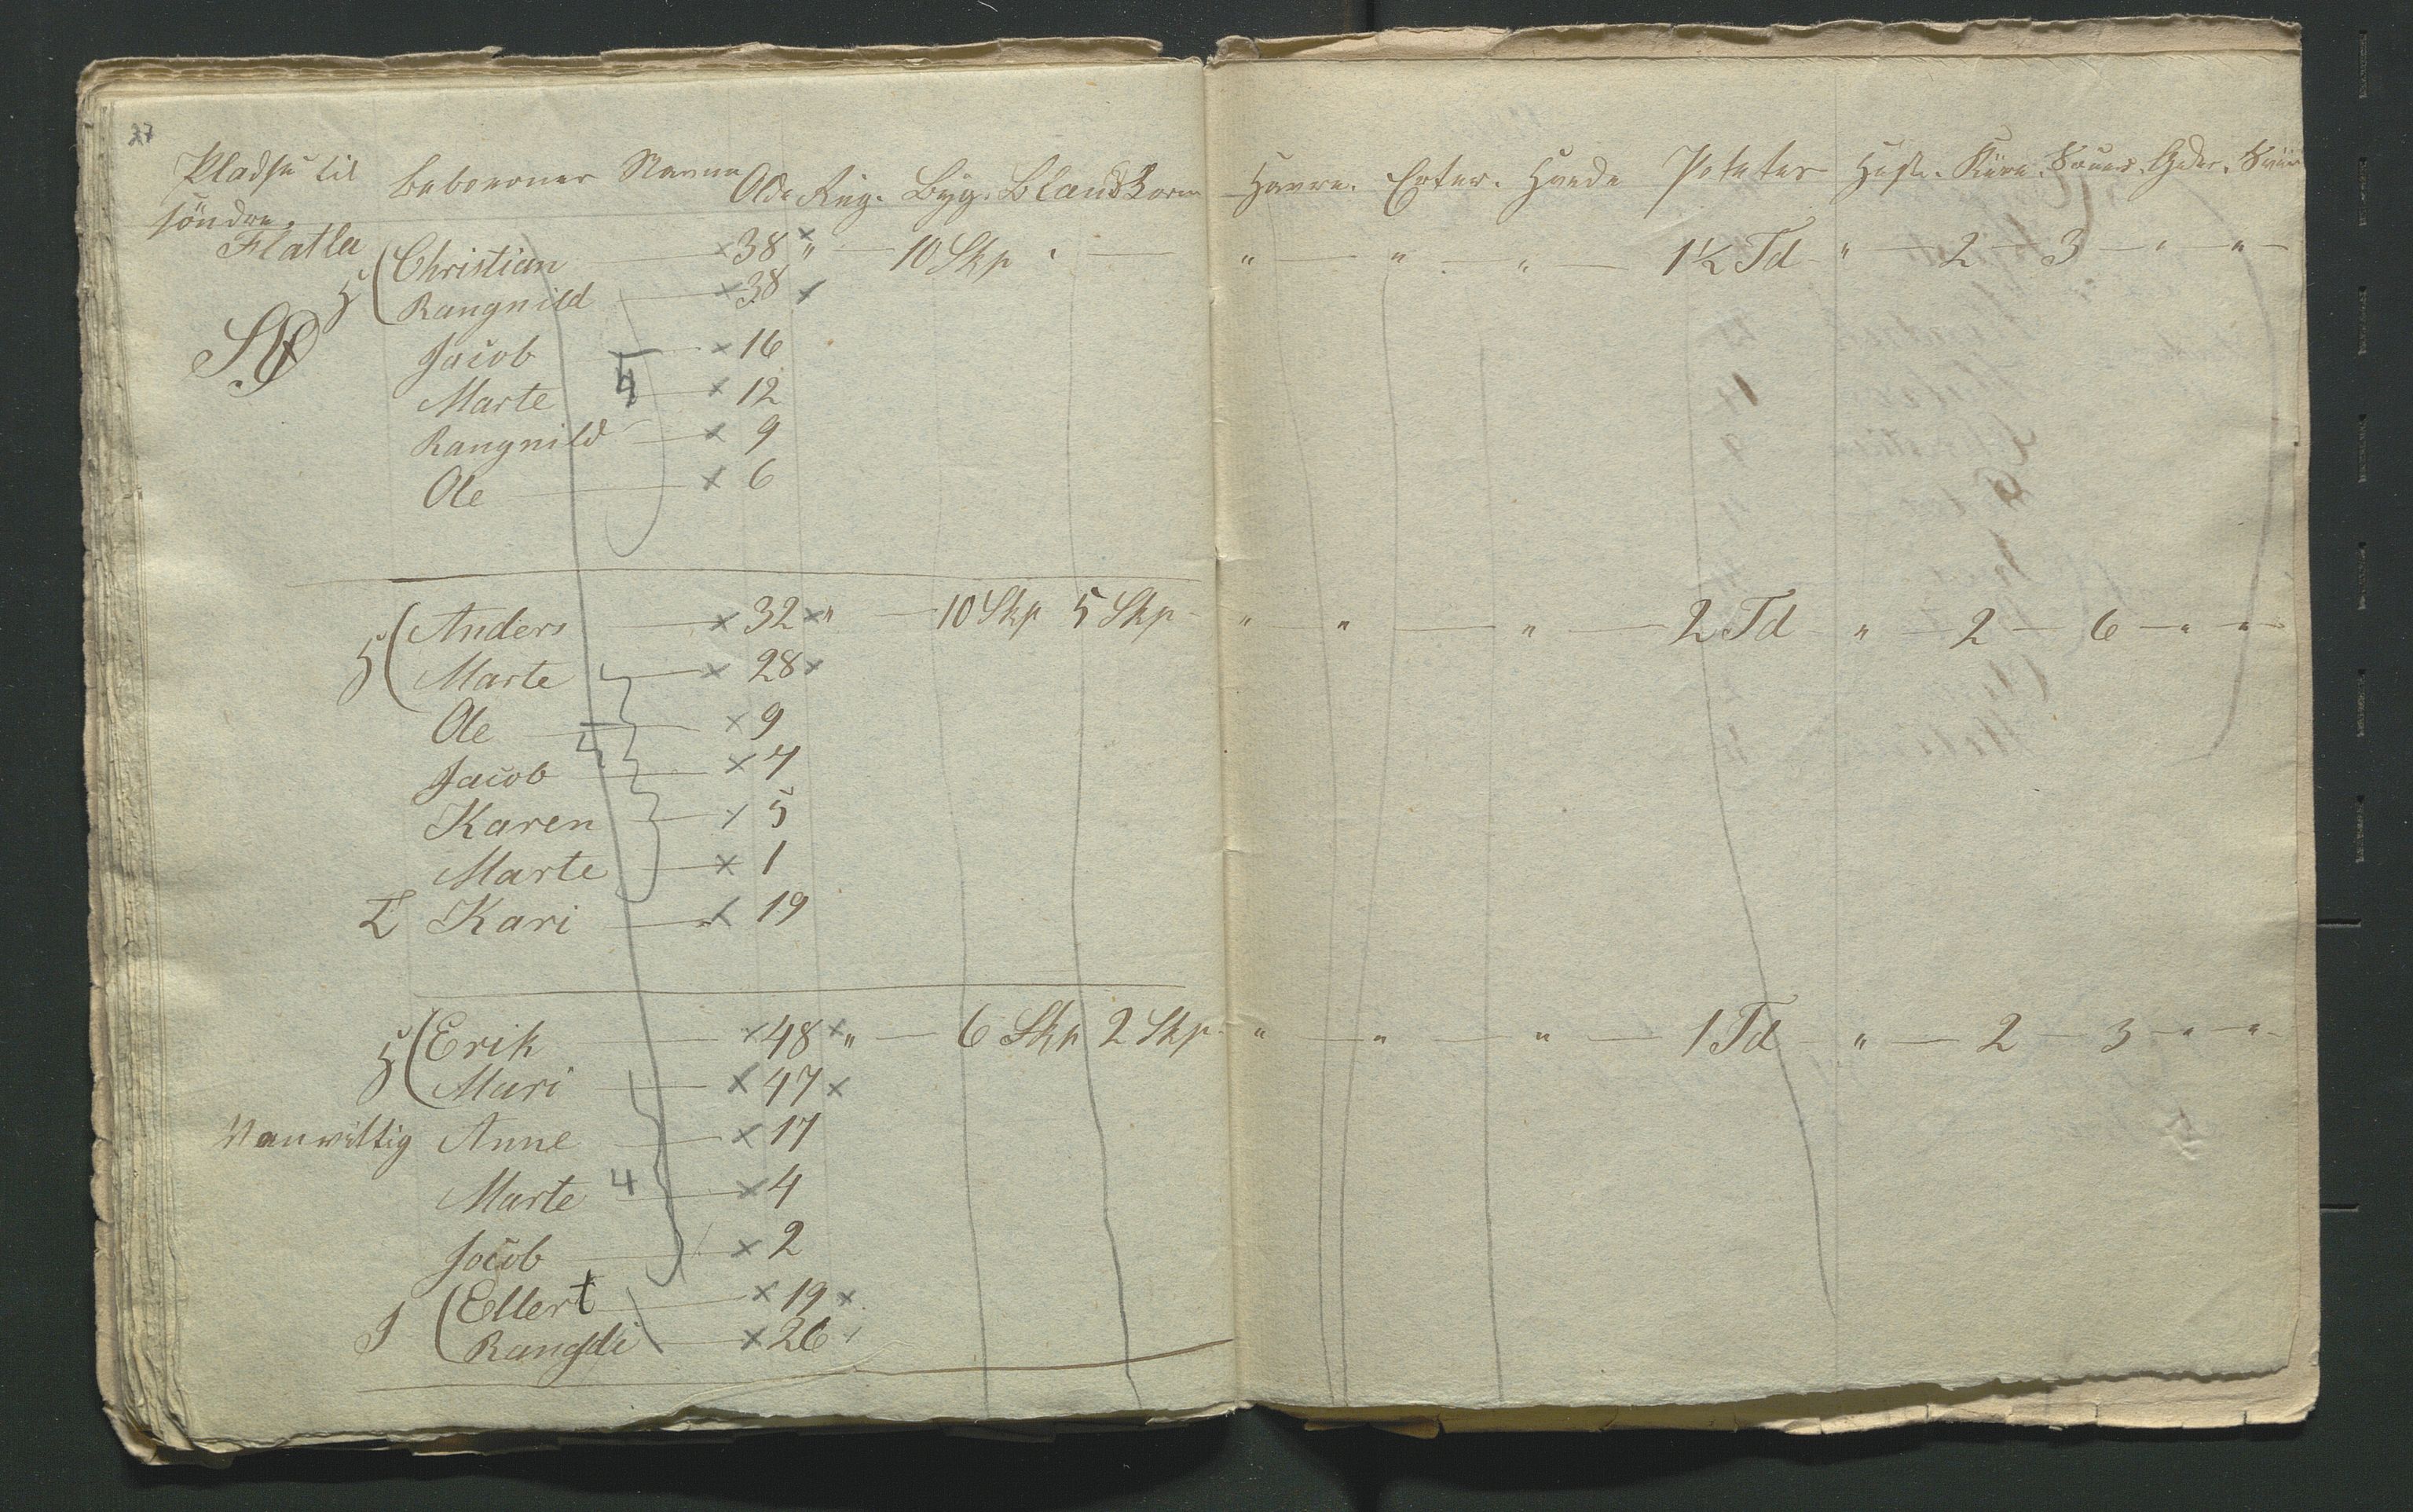 37
Pladse til Beboernes Navne Alder Rug. Byg. Blandkorn Havre. Erter. Hvede Poteter Heste. Kiøer. Souer. Geder. Sviin
söndre
Flatla Christian — × 38 × " — 10 Skp " — " — " — " — 1½ Td — " — 2 — 3 — " — " —
Rangnild — × 38 ×
Jacob — × 16
Marte 4 — × 12
Rangnild — × 9
Ole — × 6
Anders — × 32 × " — 10 Skp 5 Skp — " — " — " — 2 Td — " — 2 — 6 — " — "
Marte — × 28 ×
Ole — × 9
Jacob — × 7
Karen — × 5
Marte — × 1
Kari — × 19
Erik — × 48 × " — 6 Skp 2 Skp — " — " — " — 1 Td — " — 2 — 3 — " — " —
Mari — × 47 ×
Vanvittig Anne — × 17
Marte 4 — × 4
Jocob — × 2
Ellert — × 19 ×
Rangdi — × 26